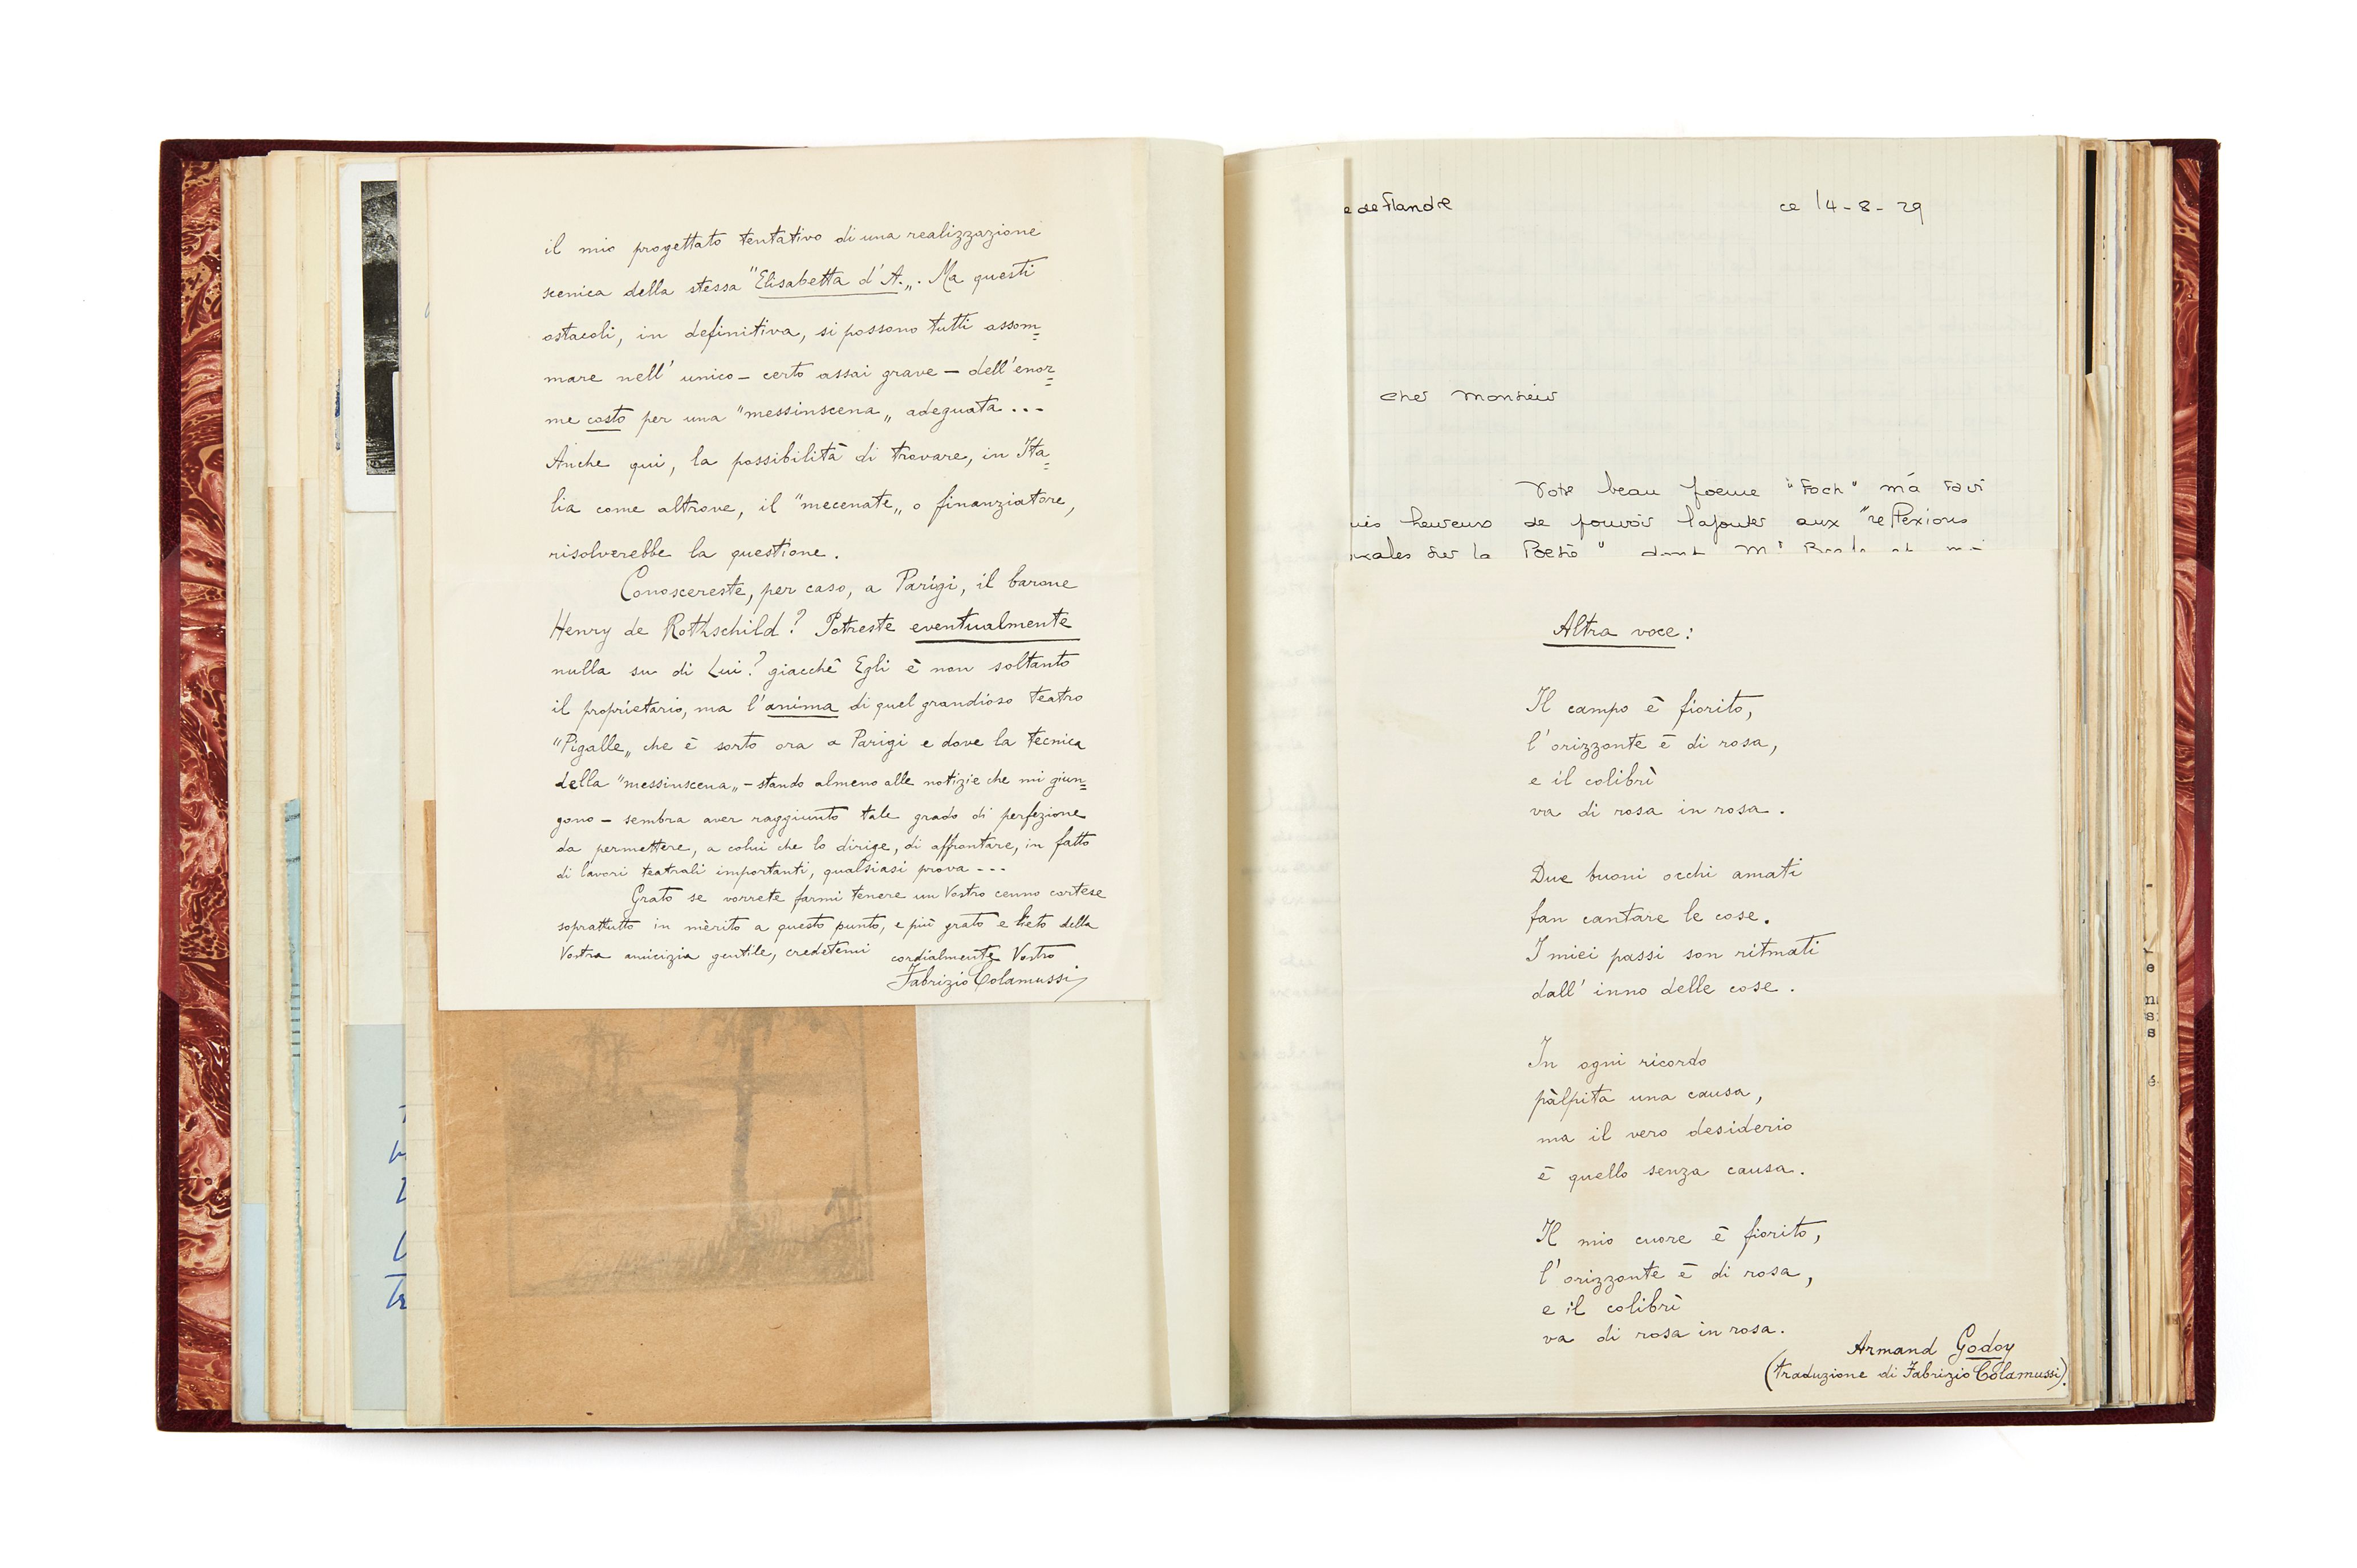 il mio progettato tentativo di una realizzazione
scenica della stessa "Elisabetta d'A.„. Ma questi
ostacoli, in definitiva, si possono tutti assom=
mare nell'unico – certo assai grave – dell'enor=
me costo per una "messinscena„ adeguata...
Anche qui, la possibilità di trovare, in Ita=
lia come altrove, il "mecenate„ o finanziatore,
risolverebbe la questione.
Conoscereste, per caso, a Parigi, il barone
Henry de Rothschild? Potreste eventualmente
nulla su di Lui? giacchè Egli è non soltanto
il proprietario, ma l'anima di quel grandioso teatro
"Pigalle„ che è sorto ora a Parigi e dove la tecnica
della "messinscena„ – stando almeno alle notizie che mi giun=
gono – sembra aver raggiunto tale grado di perfezione
da permettere, a colui che lo dirige, di affrontare, in fatto
di lavori teatrali importanti, qualsiasi prova ---
Grato se vorrete farmi tenere un Vostro cenno cortese
soprattutto in mèrito a questo punto, e più grato e lieto della
Vostra amicizia gentile, credetemi cordialmente Vostro
Fabrizio Colamussi
e de Flandre
ce 14-8-29
cher Monsieur
Votre beau poeme "Foch" m'a ravi
uis heureux de pouvoir l'ajouter aux "reflexions
sur la Poesie" dont Mr
Altra voce:
Il campo è fiorito,
l'orizzonte è di rosa,
e il colibrì
va di rosa in rosa.
Due buoni occhi amati
fan cantare le cose.
I miei passi son ritmati
dall'inno delle cose.
In ogni ricordo
pàlpita una causa,
ma il vero desiderio
è quello senza causa.
Il mio cuore è fiorito,
l'orizzonte è di rosa,
e il colibrì
va di rosa in rosa.
Armand Godoy
(traduzione di Fabrizio Colamussi).